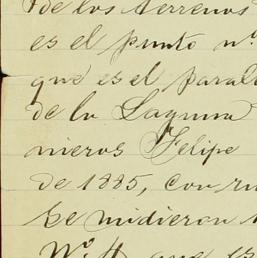 de los terrenos
es el punto nº
que es el paral
de la Laguna
nieros Felipe
de 1885, con ru
se midieron
Nº 4 que es